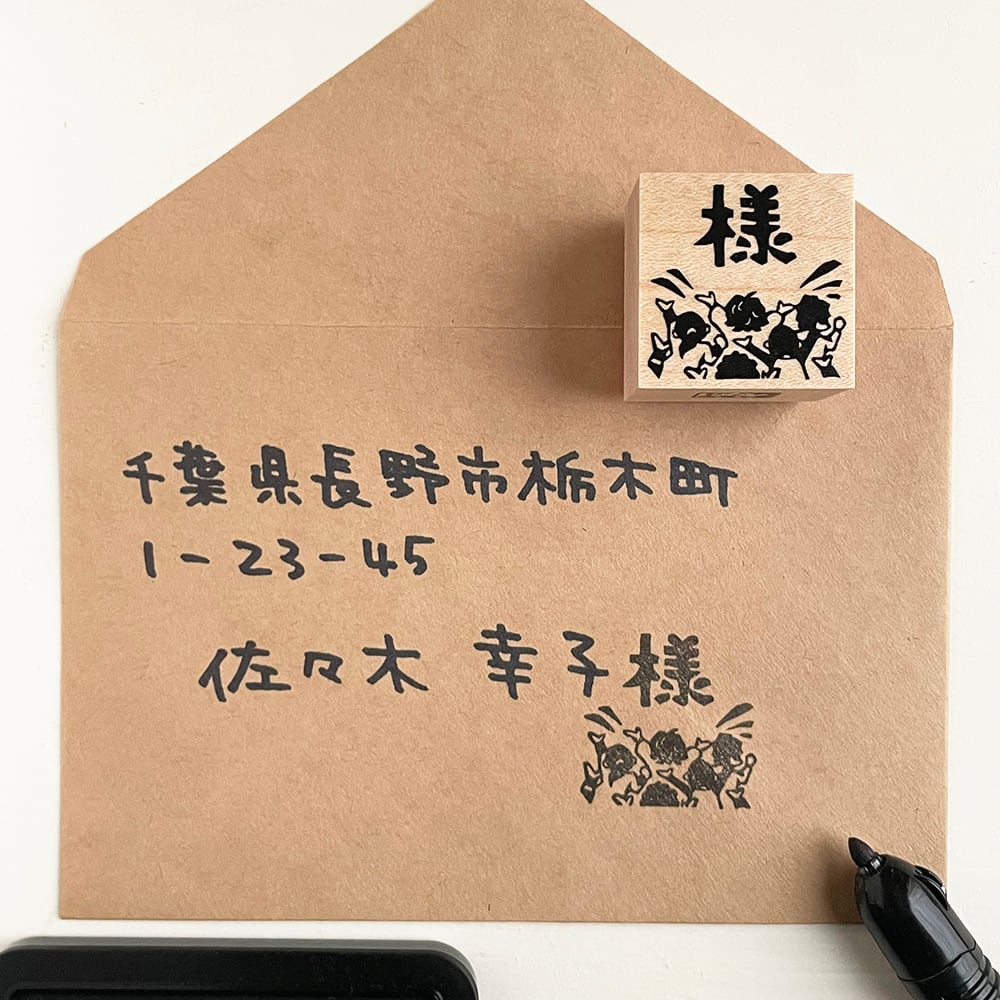 様
千葉県長野市栃木町
1-23-45
佐々木 幸子様